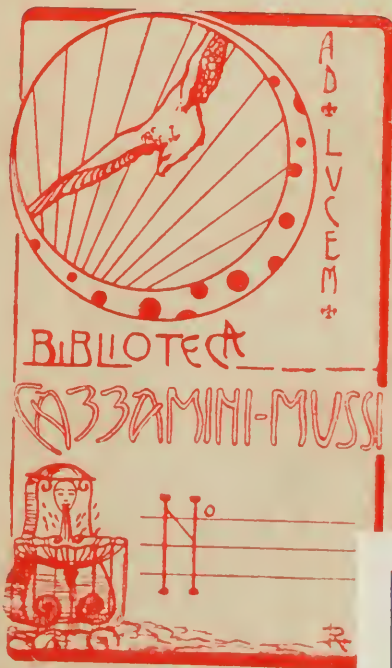 AD ✣ LVCEM ✣
BIBLIOTECA
CAZZAMINI-MUSSI
Nº